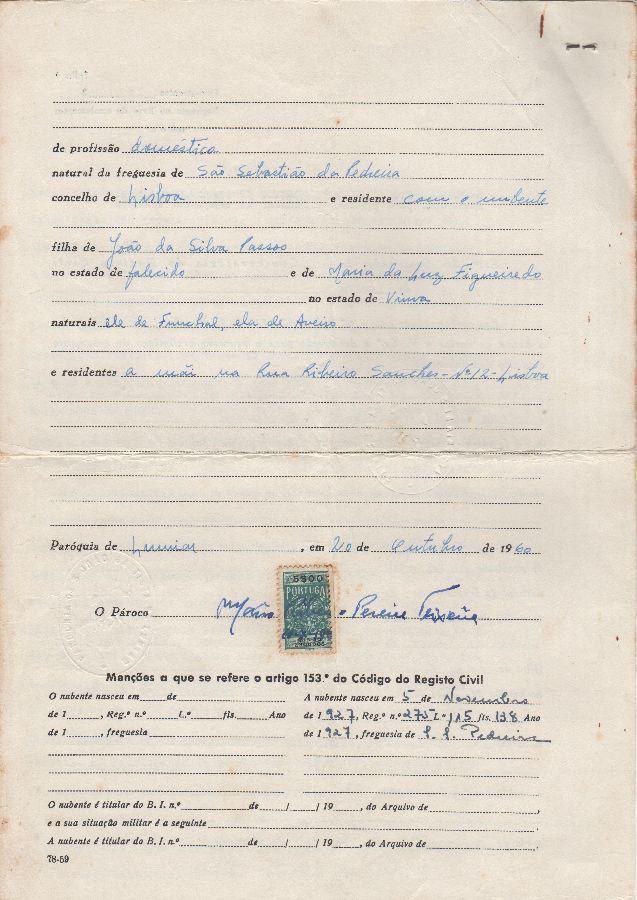 de profissão doméstica
natural da freguesia de São Sebastião da Pedreira
concelho de Lisboa e residente com o nubente
filha de João da Silva Passos
no estado de falecido e de Maria da Luz Figueiredo
no estado de Viuva
naturais ele de Funchal, ela de Aveiro
e residentes a mãi na Rua Ribeiro Sanches - Nº 12 - Lisboa
Paróquia de Lumiar, em 20 de Outubro de 1960
5$00
PORTUGAL
O Pároco Pereira Teixeira
Menções a que se refere o artigo 153.º do Código do Registo Civil
O nubente nasceu em de
de 1 , Reg.º n.º L.º fls. Ano
de 1 , freguesia
A nubente nasceu em 5 de Novembro
de 1927, Reg.º n.º 275 L.º 115 fls. 138 Ano
de 1927, freguesia de S. S. Pedreira
O nubente é titular do B. I. n.º de / / 19 , do Arquivo de
e a sua situação militar é a seguinte
A nubente é titular do B. I. n.º de / / 19 , do Arquivo de
78-59